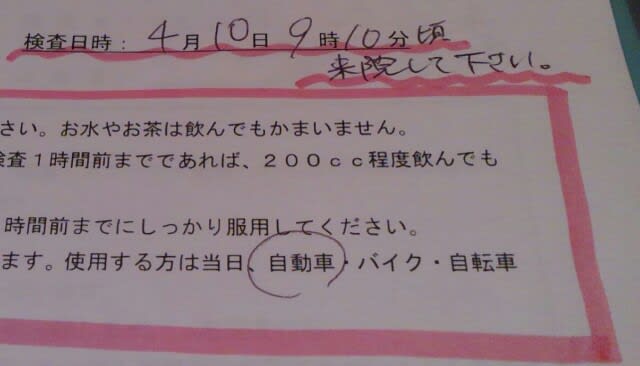 検査日時：4月10日9時10分頃
来院して下さい。
さい。お水やお茶は飲んでもかまいません。
検査１時間前までであれば、２００ｃｃ程度飲んでも
時間前までにしっかり服用してください。
ます。使用する方は当日、自動車・バイク・自転車